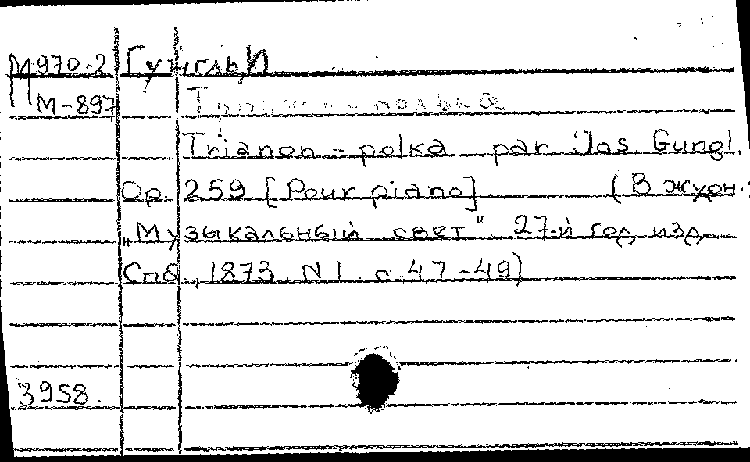 М970-2 Гунгль И
М-897 Трианон-полька
Trianon-polka par Jos Gungl.
Op. 259 [Pour piano] (В журн.:
"Музыкальный свет". 27-й год изд.
Спб., 1873. N 1. с. 47-49)
3958.